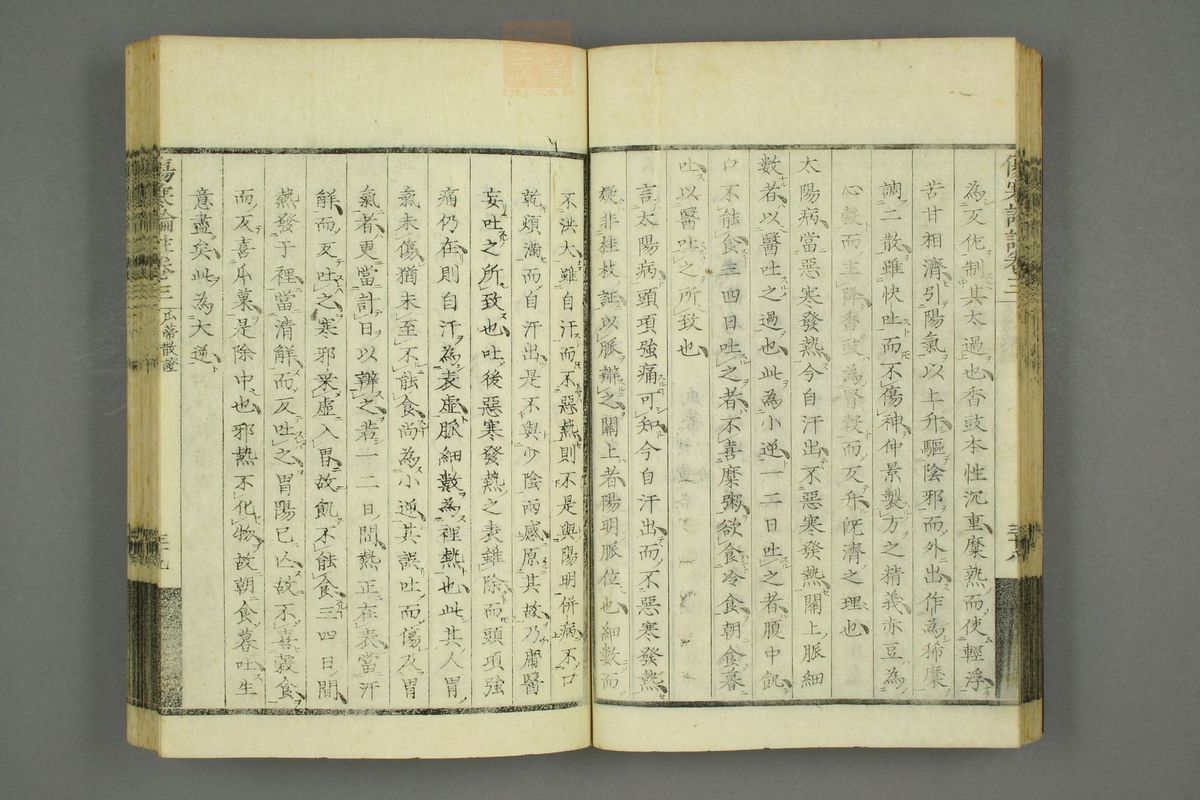 為反佐制其太過也香豉本性沉重糜熟而使輕浮
苦甘相濟引陽氣以上升驅陰邪而外出作為稀糜
調二散雖快吐而不傷神仲景製方之精義赤豆為
心穀而主降香豉為腎穀而反升旣濟之理也
太陽病當惡寒發熱今自汗出不惡寒發熱關上脈細
數者以醫吐之過也此為小逆一二日吐之者腹中飢
口不能食三四日吐之者不喜糜粥欲食冷食朝食暮
吐以醫吐之所致也
言太陽病頭項強痛可知今自汗出而不惡寒發熱
疑非桂枝証以脈辨之關上者陽明脈位也細數而
傷寒論註卷三
瓜蒂散證
三十九
不洪大雖自汗而不惡熱則不是與陽明併病不口
乾煩滿而自汗出是不與少陰兩感原其故乃庸醫
妄吐之所致也吐後惡寒發熱之表雖除而頭項強
痛仍在則自汗為表虛脈細數為裡熱也此其人胃
氣未傷猶未至不能食尚為小逆其誤吐而傷及胃
氣者更當計日以辨之若一二日間熱正在表當汗
解而反吐之寒邪乘虛入胃故飢不能食三四日間
熱發于裡當清解而反吐之胃陽已亾故不喜穀食
而反喜瓜菓是除中也邪熱不化物故朝食暮吐生
意盡矣此為大逆